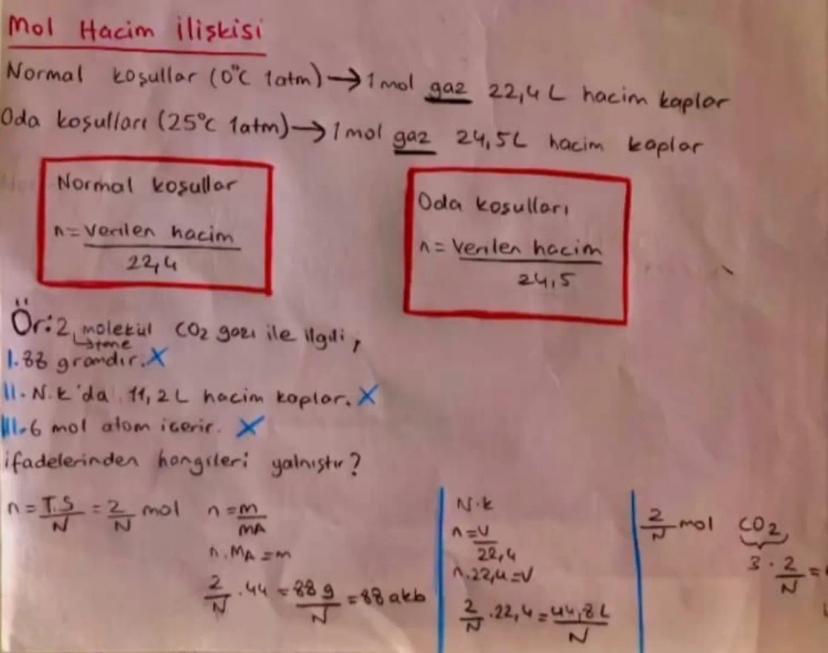 Mol Hacim ilişkisi
Normal koşullar (0°C 1atm)→1mol gaz 22,4L hacim kaplar
Oda koşulları (25°C 1atm)→1mol gaz 24,5L hacim kaplar
Normal koşullar
n=verilen hacim
22,4
Oda koşulları
n=verilen hacim
24,5
Ör:2 molekül CO2 gazı ile ilgili,
↳tane
1.88 gramdır.X
II.N.k'da 11,2L hacim kaplar.X
III.6 mol atom içerir. X
ifadelerinden hangileri yalnıştır?
n=T.S/N=2/N mol
n=m/MA
n.MA=m
2/N.44=88g/N=88akb
N.k
n=V/22,4
n.22,4=V
2/N.22,4=44,8L/N
2/N mol CO2
3.2/N=